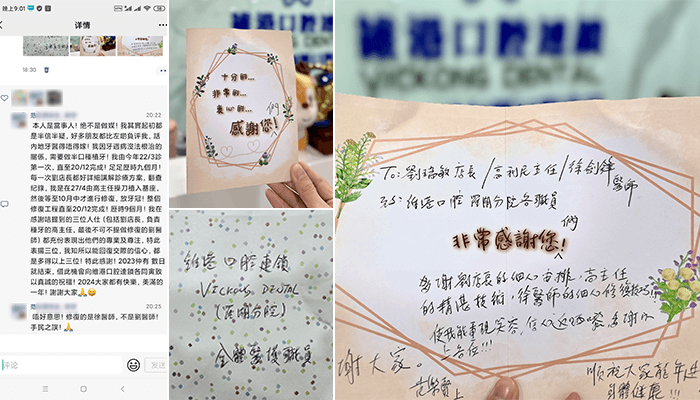 晚上9:01
详情
18:30
20:22
本人是當事人! 他不是做媒! 我其實起初都
是半信半疑，好多朋友都比左啲負评我，話
內地牙醫得唔得㗎! 我因牙週病沒法根治的
關係，需要做半口種植牙! 我由今年22/3診
第一次，直至20/12完成! 足足歷時九個月!
每一次劉店長都好詳細講解診療方案，翻查
紀錄，我是在27/4由高主任操刀植入基座。
然後等至10月中才進行修復，放牙冠! 整個
修復工程直至20/12完成! 歷時9個月! 我在
感謝啫黐到的三位人仕 (包括劉店長，負責
種牙的高主任，最後不可不提做修復的劉醫
師) 都充份表現出他們的專業及尊注，特此
表揚三位，我知所以能回復交際的信心，都
是多得以上三位! 特此感謝! 2023仲有 數日
就結束，借此機會向維港口腔連鎖各同寅致
以真誠的祝福! 2024大家都有快樂，美滿的
一年! 謝謝大家🙏😄
20:31
唔好意思! 修復的是徐醫師，不是劉醫師!
手民之誤! 🙏
评论
发送
十分的...
非常的...
衷心的...
感謝您! 們
維港口腔連鎖
VICKONG DENTAL
(羅湖分院)
全體醫護職員
維港口腔連鎖
VICKONG DENTAL
To: 劉瑞敏店長/高利民主任/徐劍鋒醫師
及: 維港口腔羅湖分院各職員
非常感謝您! 們
多謝劉店長的細心安排，高主任
的精湛技術，徐醫師的細心修復技巧!!!
使我能重現笑容，信心
上各位!!!
謝大家。
上
順祝大家龍年進
身體健康!!!